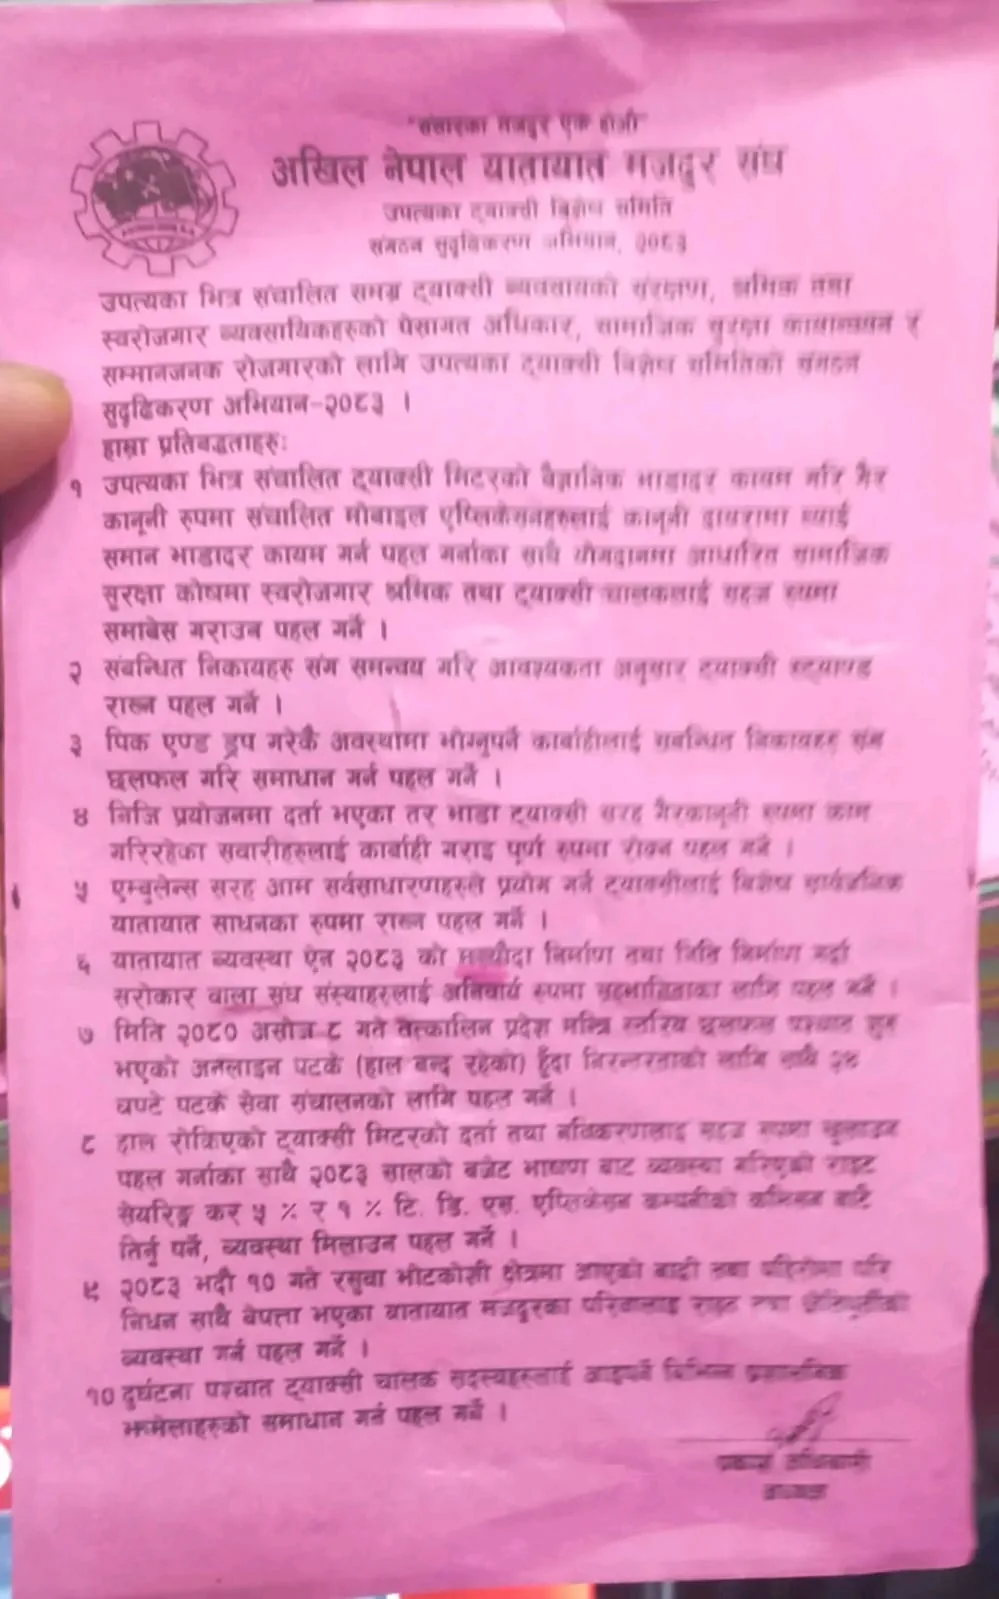 "संसारका मजदुर एक होऔं"
अखिल नेपाल यातायात मजदुर संघ
उपत्यका ट्याक्सी बिशेष समिति
संगठन सुदृढिकरण अभियान, २०८३
उपत्यका भित्र संचालित समग्र ट्याक्सी व्यवसायको संरक्षण, श्रमिक तथा
स्वरोजगार व्यवसायिकहरुको पेसागत अधिकार, सामाजिक सुरक्षा कार्यान्वयन र
सम्मानजनक रोजगारको लागि उपत्यका ट्याक्सी बिशेष समितिको संगठन
सुदृढिकरण अभियान-२०८३ ।
हाम्रा प्रतिबद्धताहरु:
१ उपत्यका भित्र संचालित ट्याक्सी मिटरको बैज्ञानिक भाडादर कायम गरि गैर
कानूनी रुपमा संचालित मोबाइल एप्लिकेसनहरुलाई कानूनी दायरामा ल्याई
समान भाडादर कायम गर्न पहल गर्नाका साथै योगदानमा आधारित सामाजिक
सुरक्षा कोषमा स्वरोजगार श्रमिक तथा ट्याक्सी चालकलाई सहज रुपमा
समाबेस गराउन पहल गर्ने ।
२ संबन्धित निकायहरु संग समन्वय गरि आवश्यकता अनुसार ट्याक्सी स्ट्याण्ड
राख्न पहल गर्ने ।
३ पिक एण्ड ड्रप गरेकै अवस्थामा भोग्नुपर्ने कार्बाहीलाई सबन्धित निकायहरु संग
छलफल गरि समाधान गर्न पहल गर्ने ।
४ निजि प्रयोजनमा दर्ता भएका तर भाडा ट्याक्सी सरह गैरकानूनी रुपमा काम
गरिरहेका सवारीहरुलाई कार्बाही गराइ पूर्ण रुपमा रोक्न पहल गर्ने ।
५ एम्बुलेन्स सरह आम सर्वसाधारणहरुले प्रयोग गर्ने ट्याक्सीलाई बिशेष सार्वजनिक
यातायात साधनका रुपमा राख्न पहल गर्ने ।
६ यातायात व्यवस्था ऐन २०८३ को मस्यौदा निर्माण तथा निति निर्माण गर्दा
सरोकार वाला संघ संस्थाहरलाई अनिवार्य रुपमा सहभागिताका लागि पहल गर्ने ।
७ मिति २०८० असोज ८ गते तत्कालिन प्रदेश मन्त्रि स्तरिय छलफल पश्चात सुरु
भएको अनलाइन पटके (हाल बन्द रहेको) हुँदा निरन्तरताको लागि साथै २४
घण्टे पटके सेवा संचालनको लागि पहल गर्ने ।
८ हाल रोकिएको ट्याक्सी मिटरको दर्ता तथा नविकरणलाइ सहज रुपमा खुलाउन
पहल गर्नाका साथै २०८३ सालको बजेट भाषण बाट व्यवस्था गरिएको राइट
सेयरिङ्ग कर ५ % र १ % टि. डि. एस. एप्लिकेसन कम्पनीको कमिसन बाटै
तिर्नु पर्ने, व्यवस्था मिलाउन पहल गर्ने ।
९ २०८३ भदौ १० गते रसुवा भोटकोशी क्षेत्रमा आएको बाढी तथा पहिरोमा परि
निधन साथै बेपत्ता भएका यातायात मजदुरका परिवारलाइ राहत तथा क्षेतिपूर्तीको
व्यवस्था गर्न पहल गर्ने ।
१० दुर्घटना पश्चात ट्याक्सी चालक सदस्यहरुलाई आइपर्ने बिभिन्न प्रशासनिक
झमेलाहरुको समाधान गर्न पहल गर्ने ।
प्रकाश अधिकारी
अध्यक्ष